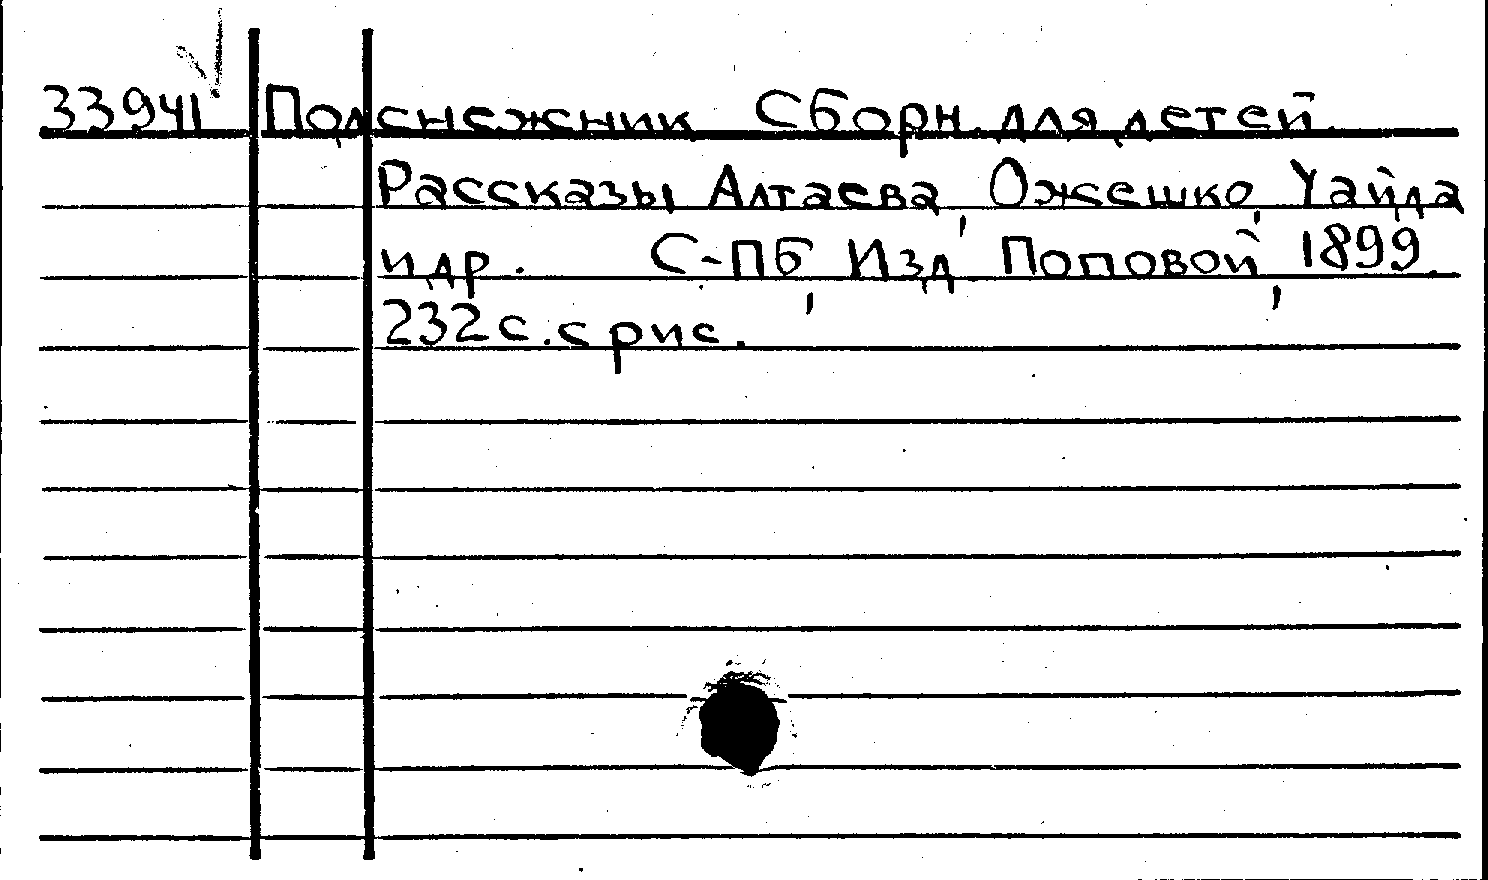 33941 Подснежник Сборн. для детей.
Рассказы Алтаева, Ожешко, Уайда
и др. С-ПБ, Изд Поповой, 1899.
232 с. с рис.